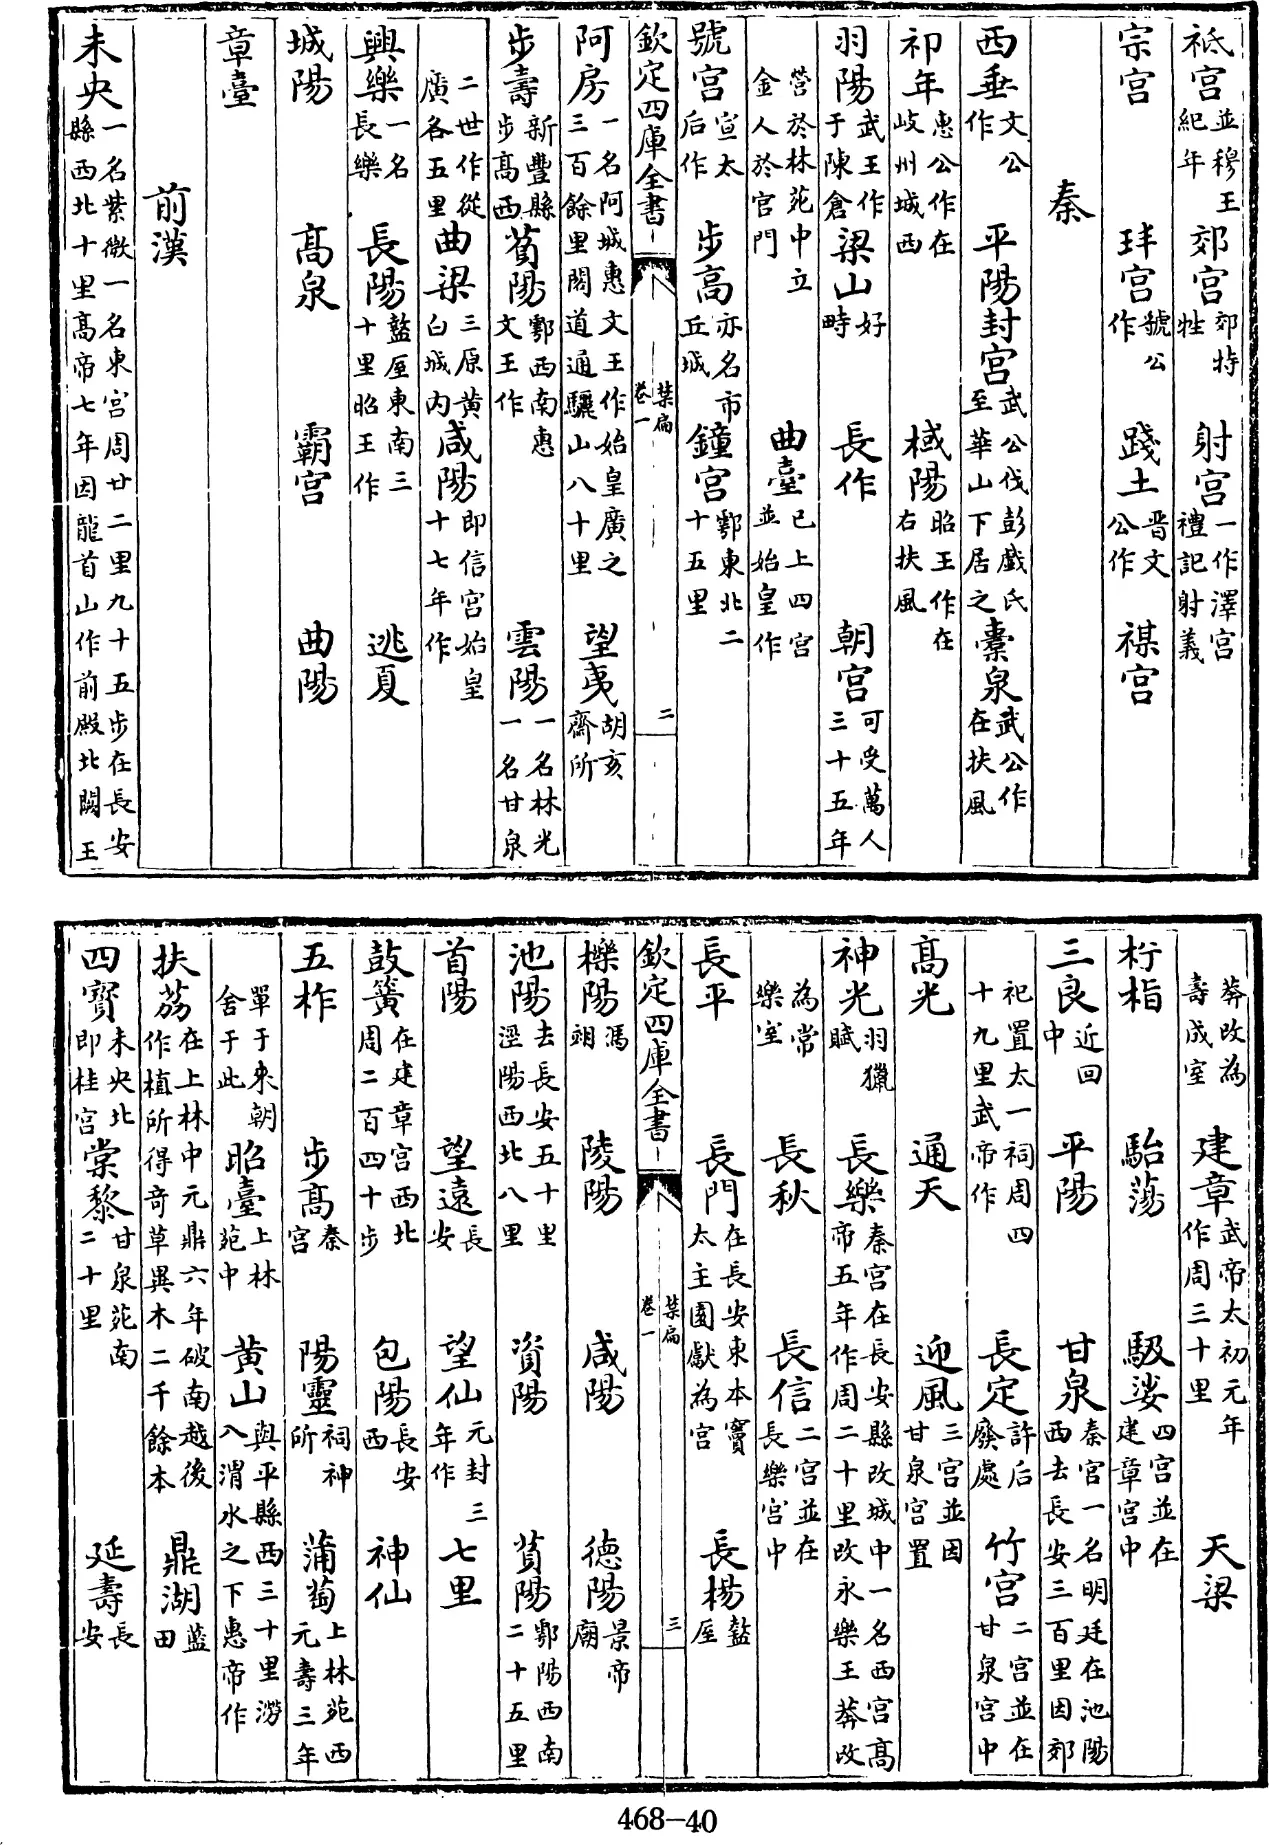 祗宫並穆王紀年 郊宫郊特牲 射宫一作澤宫禮記射義
宗宫 玤宫虢公作 踐土晋文公作 禖宫
秦
西垂文公作 平陽封宫武公伐彭戲氏至華山下居之 橐泉武公作在扶風
祁年惠公作在岐州城西 棫陽昭王作在右扶風
羽陽武王作于陳倉 梁山好畤 長作 朝宫可受萬人三十五年
營於林苑中立金人於宫門 曲臺已上四宫並始皇作
號宫宣太后作 步高亦名市丘城 鐘宫鄠東北二十五里
欽定四庫全書 禁扁 卷一 二
阿房一名阿城惠文王作始皇廣之三百餘里閣道通驪山八十里 望夷胡亥齋所
步壽新豐縣步髙西 萯陽鄠西南惠文王作 雲陽一名林光一名甘泉
二世作從廣各五里 曲梁三原黄白城内 咸陽即信宫始皇十七年作
興樂一名長樂 長陽盩厔東南三十里昭王作 逃夏
城陽 髙泉 霸宫 曲陽
章臺
前漢
未央一名紫微一名東宫周廿二里九十五步在長安縣西北十里髙帝七年因龍首山作前殿北闕王
莽改為壽成室 建章武帝太初元年作周三十里 天梁
枍栺 駘蕩 馺娑四宫並在建章宫中
三良近回中 平陽 甘泉秦宫一名明廷在池陽西去長安三百里因郊
祀置太一祠周四十九里武帝作 長定許后廢處 竹宫二宫並在甘泉宫中
髙光 通天 迎風三宫並因甘泉宫置
神光羽獵賦 長樂秦宫在長安縣城中一名西宫髙帝五年作周二十里改改永樂王莽改
為常樂室 長秋 長信二宫並在長樂宫中
長平 長門在長安東本竇太主園獻為宫 長楊盩厔
欽定四庫全書 禁扁 卷一 三
櫟陽馮翊 陵陽 咸陽 德陽景帝廟
池陽去長安五十里涇陽西北八里 資陽 萯陽鄠陽西南二十五里
首陽 望遠長安 望仙元封三年作 七里
鼓簧在建章宫西北周二百四十步 包陽長安西 神仙
五柞 步髙秦宫 陽靈祠神所 蒲萄上林苑西元壽三年
單于来朝舍于此 昭臺上林苑中 黄山興平縣西三十里澇八渭水之下惠帝作
扶荔在上林中元鼎六年破南越後作植所得奇草異木二千餘本 鼎湖藍田
四寳未央北即桂宫 棠黎甘泉苑南二十里 延壽長安
468-40